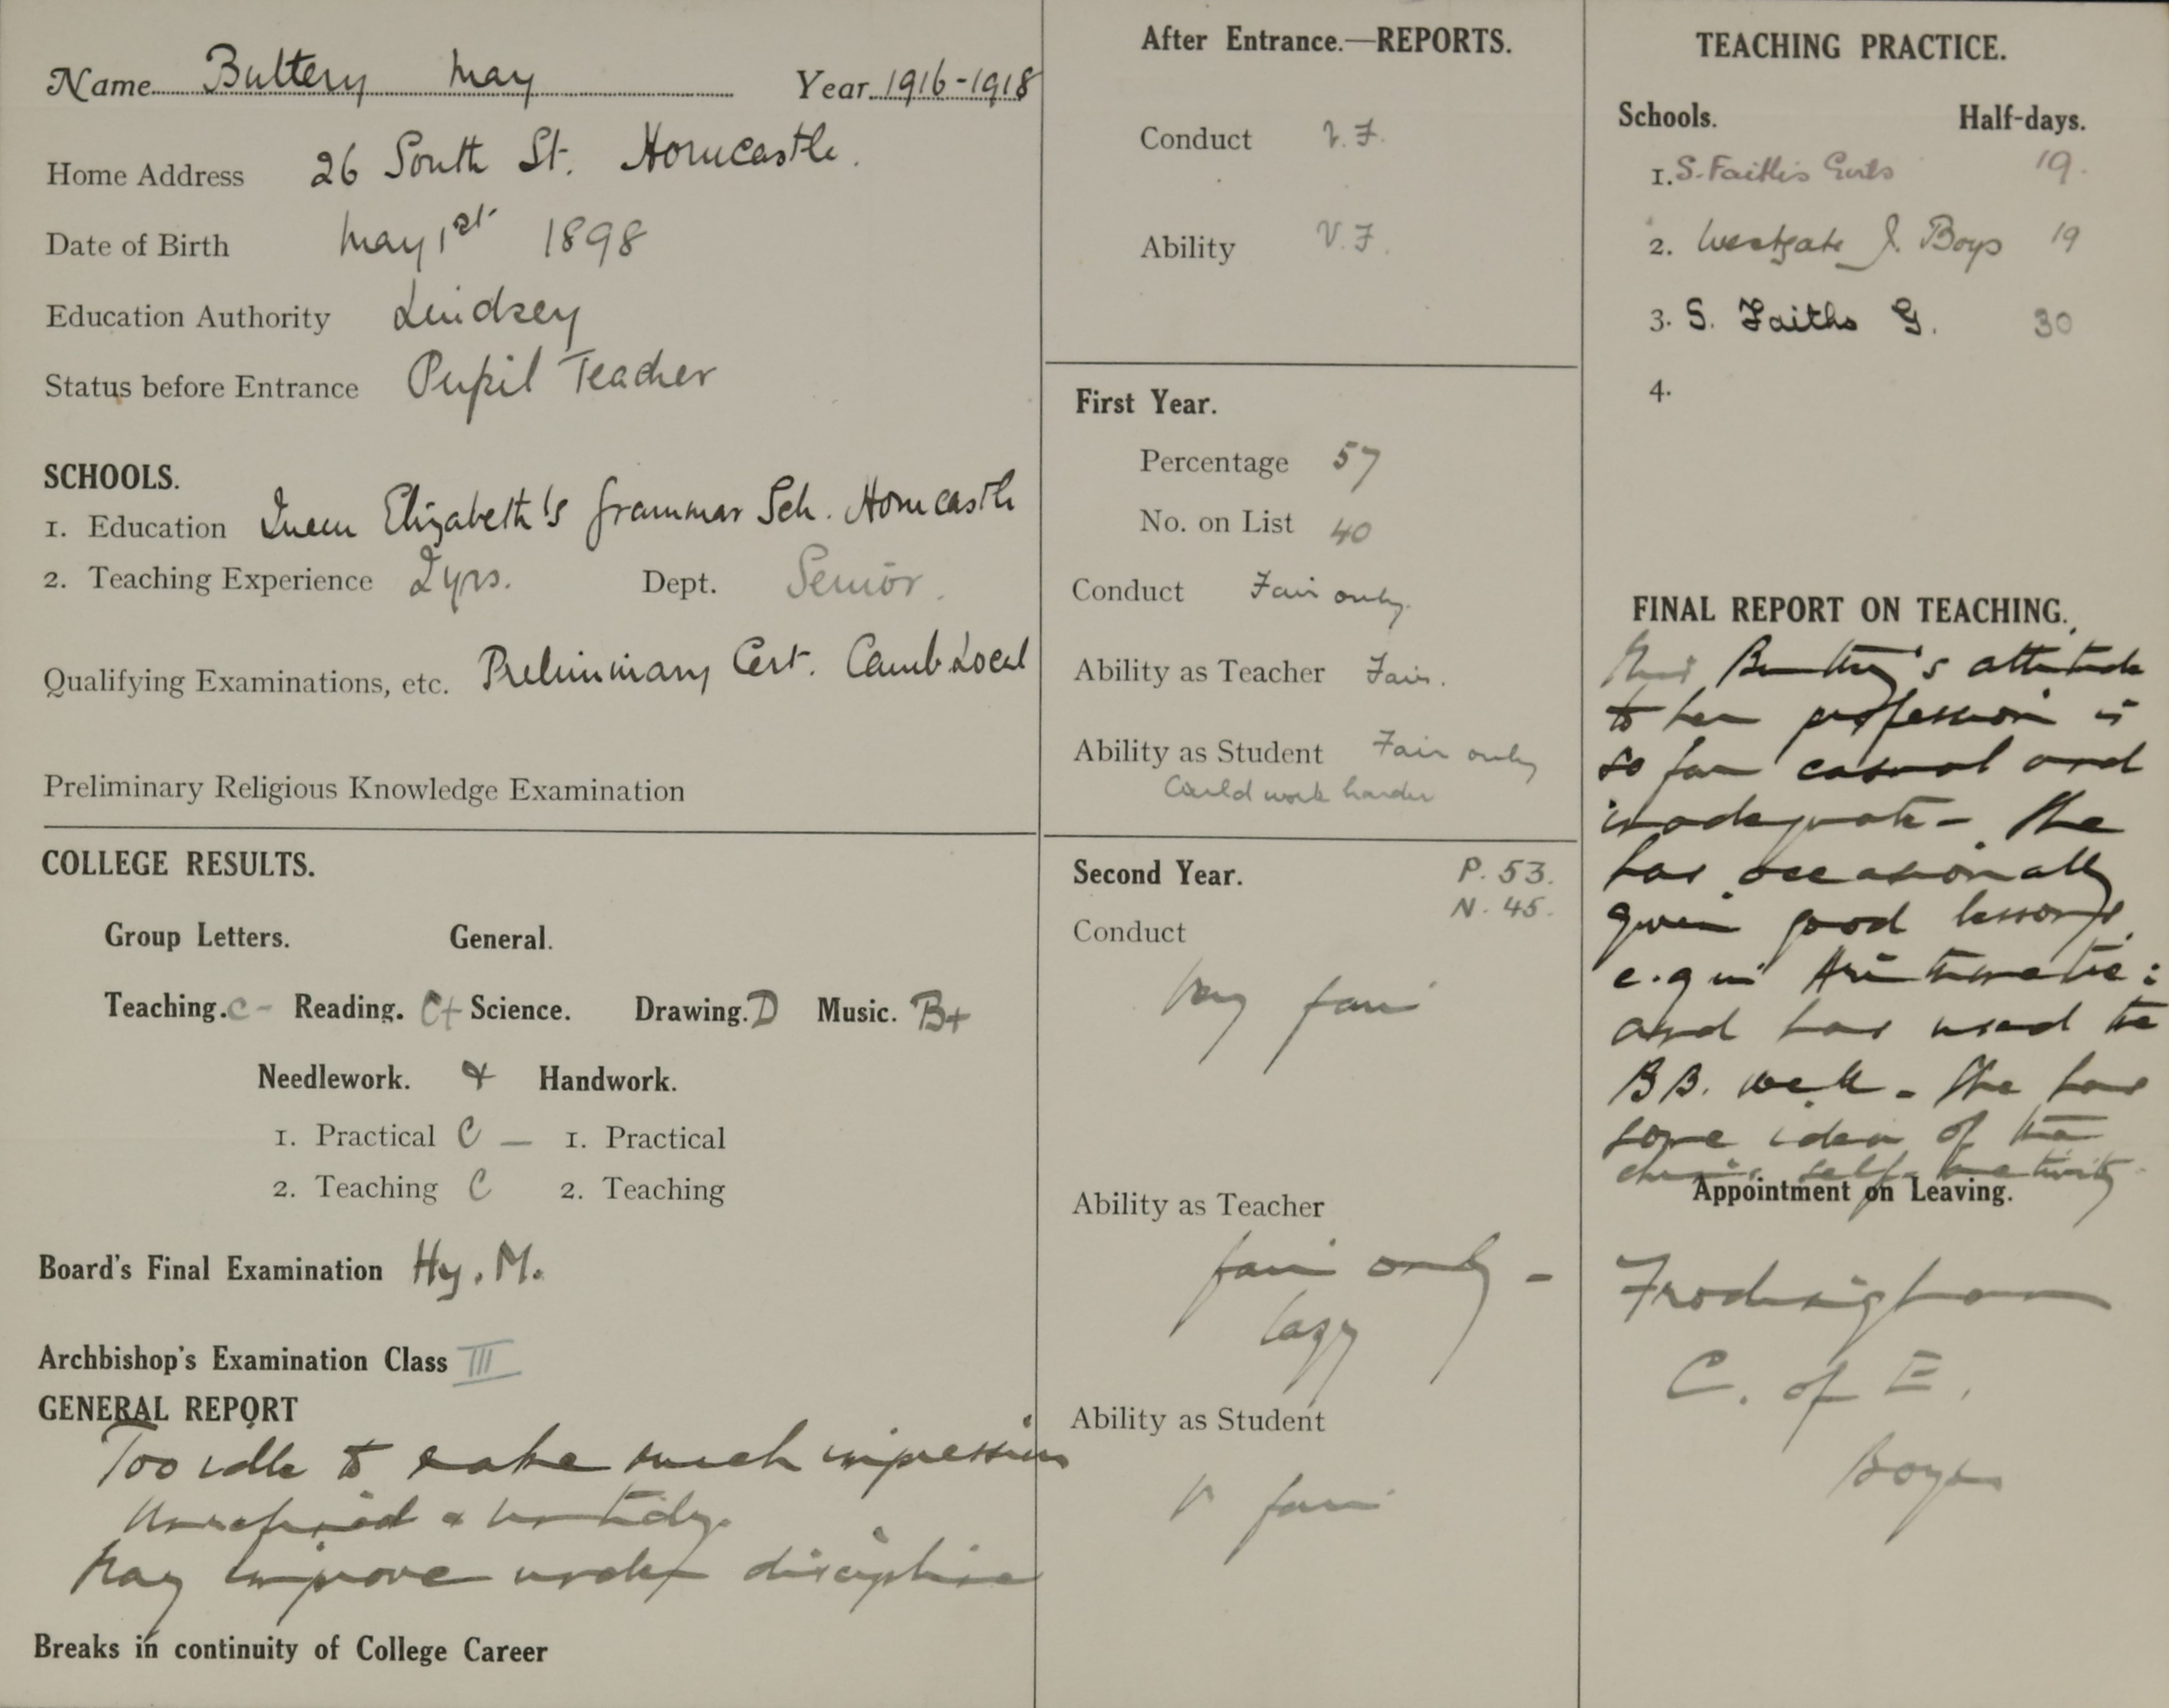 Name Buttery May Year 1916-1918
Home Address 26 South St. Horncastle.
Date of Birth May 1st 1898
Education Authority Lindsey
Status before Entrance Pupil Teacher
SCHOOLS.
1. Education Queen Elizabeth's Grammar Sch. Horncastle
2. Teaching Experience 2 yrs. Dept. Senior.
Qualifying Examinations, etc. Preliminary Cert. Camb Local
Preliminary Religious Knowledge Examination
COLLEGE RESULTS.
Group Letters. General.
Teaching. C- Reading. C+ Science. Drawing. D Music. B+
Needlework. & Handwork.
1. Practical C — 1. Practical
2. Teaching C 2. Teaching
Board's Final Examination Hy. M.
Archbishop's Examination Class III
GENERAL REPORT
Too idle to make much impression
Unrefined & untidy.
May improve under discipline
Breaks in continuity of College Career
After Entrance.—REPORTS.
Conduct V.F.
Ability V.F.
First Year.
Percentage 57
No. on List 40
Conduct Fair only.
Ability as Teacher Fair.
Ability as Student Fair only
Could work harder
Second Year. P. 53.
N. 45.
Conduct
Very fair
Ability as Teacher
fair only -
lazy
Ability as Student
V fair
TEACHING PRACTICE.
Schools. Half-days.
1. S. Faith's Girls 19.
2. Westgate J. Boys 19
3. S. Faiths G. 30
4.
FINAL REPORT ON TEACHING.
Miss Buttery's attitude
to her profession is
so far casual and
inadequate - She
has occasionally
given good lessons,
e.g in Arithmetic:
and has used the
BB. well - She has
some idea of the
self-activity
Appointment on Leaving.
Frodingham
C. of E.
Boys